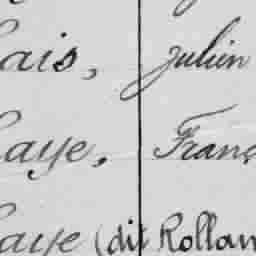 ais, Julien
aye, Franç
aye (dit Rollan